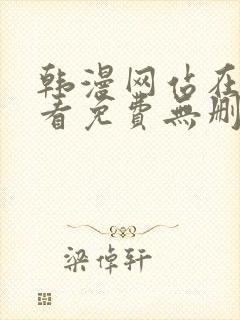 韩漫网站在
看免費無删
梁倬轩